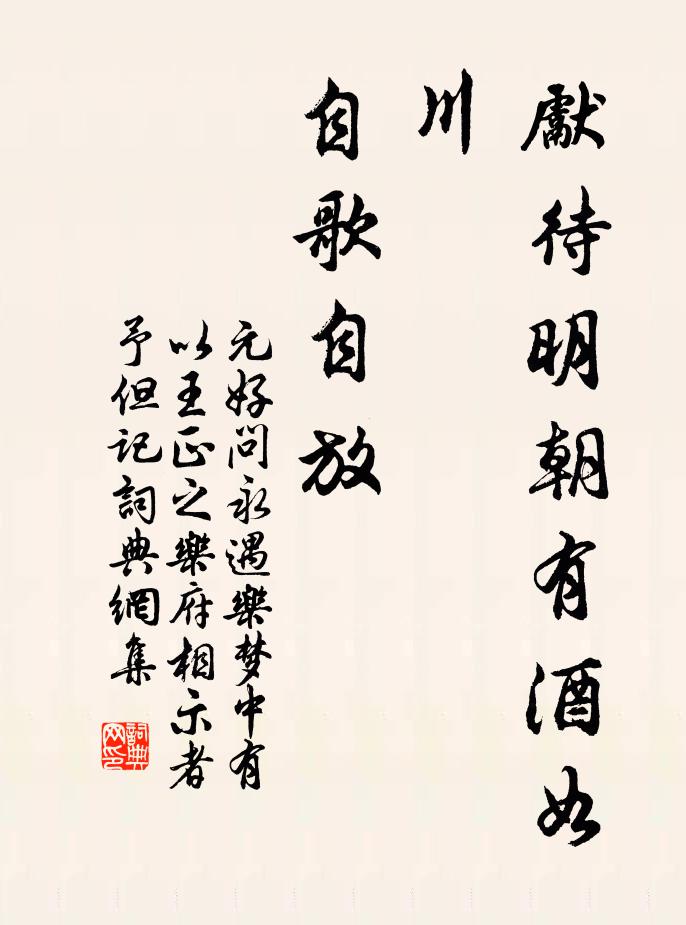 獻待明朝有酒如
川
自歌自放
元好问永遇樂梦中有
以王正之樂府相示者
予但记詞典網集
詞典网印